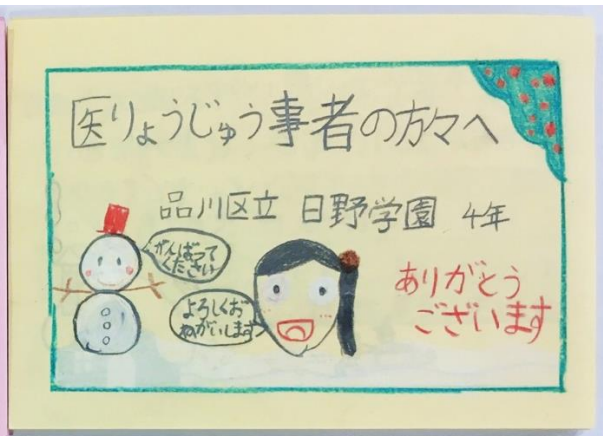 医りょうじゅう事者の方々へ
品川区立 日野学園 4年
がんばって
ください
よろしくお
ねがいします
ありがとう
ございます